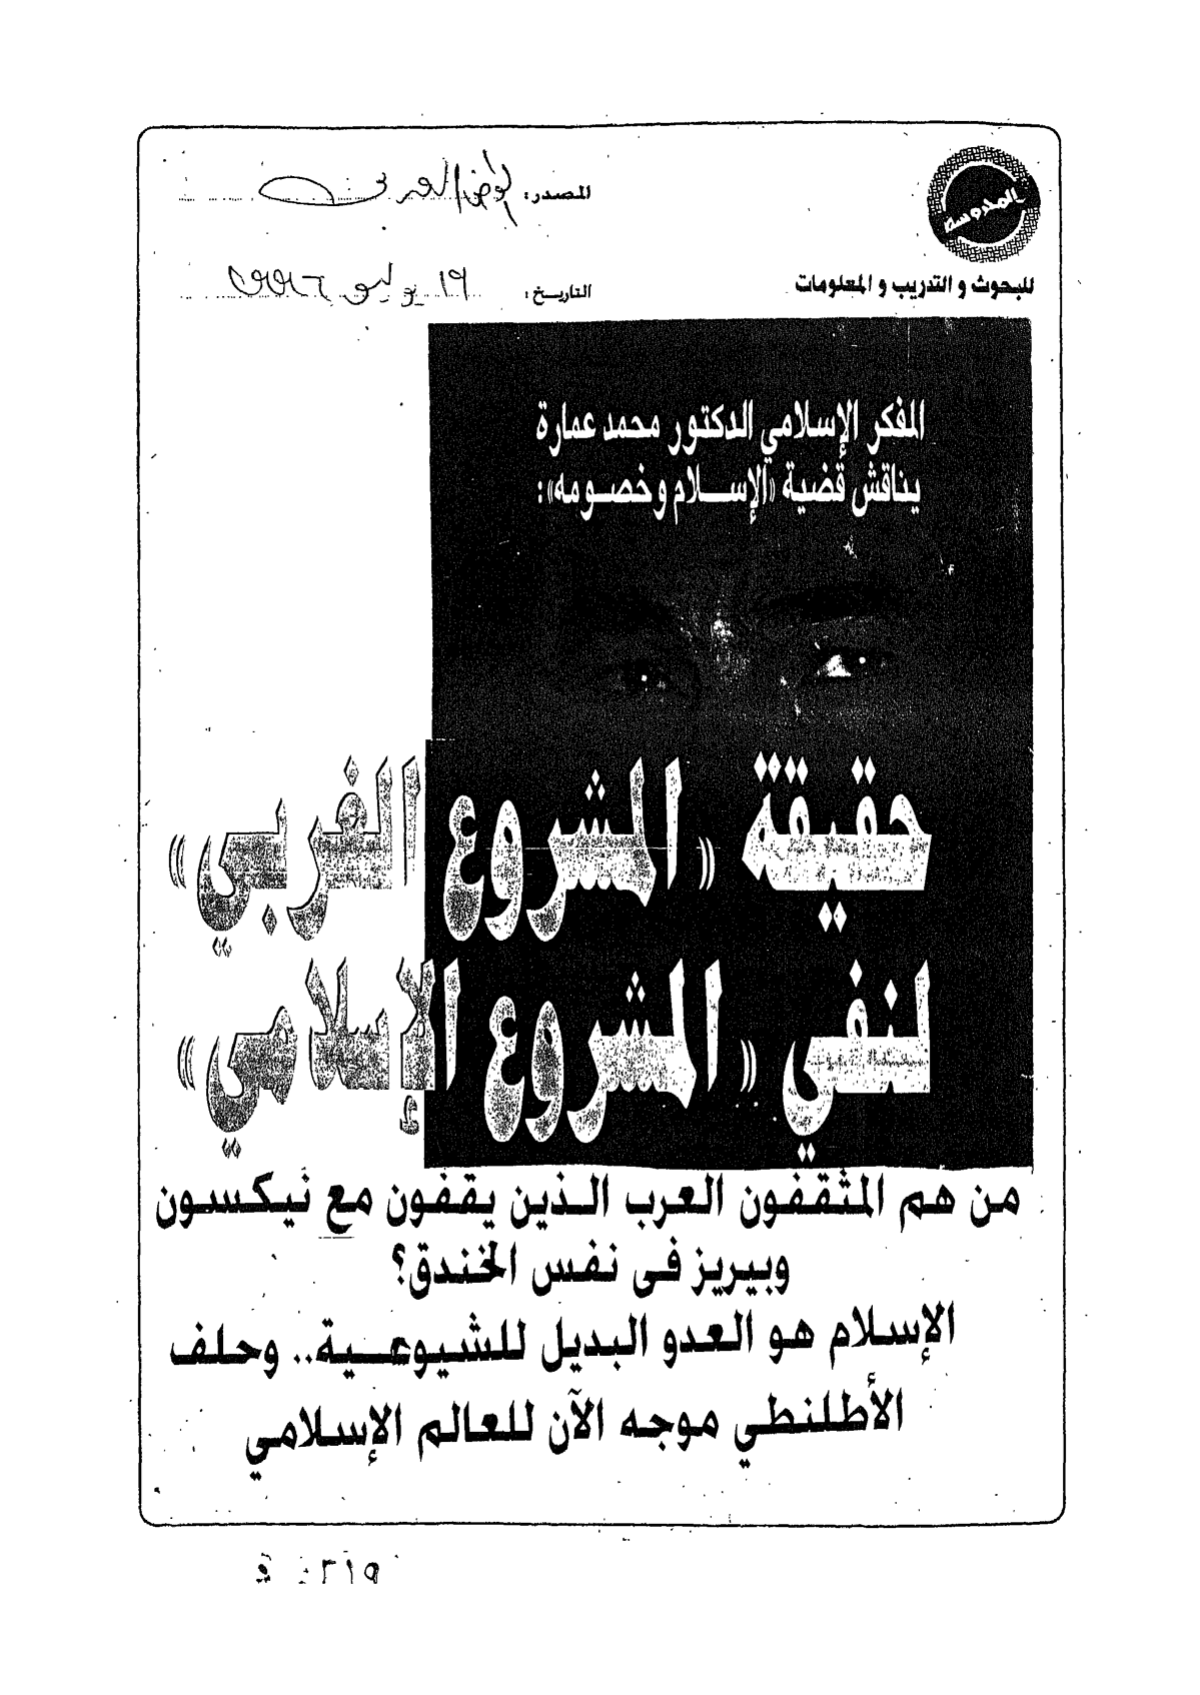 المحروسة
للبحوث و التدريب و المعلومات
المصدر: الوطن العربي
التاريخ: ١٩ يوليو
المفكر الإسلامي الدكتور محمد عمارة
يناقش قضية «الإسلام وخصومه»:
حقيقة «المشروع الغربي»
لنفي «المشروع الإسلامي»
من هم المثقفون العرب الذين يقفون مع نيكسون
وبيريز فى نفس الخندق؟
الإسلام هو العدو البديل للشيوعية.. وحلف
الأطلنطي موجه الآن للعالم الإسلامي